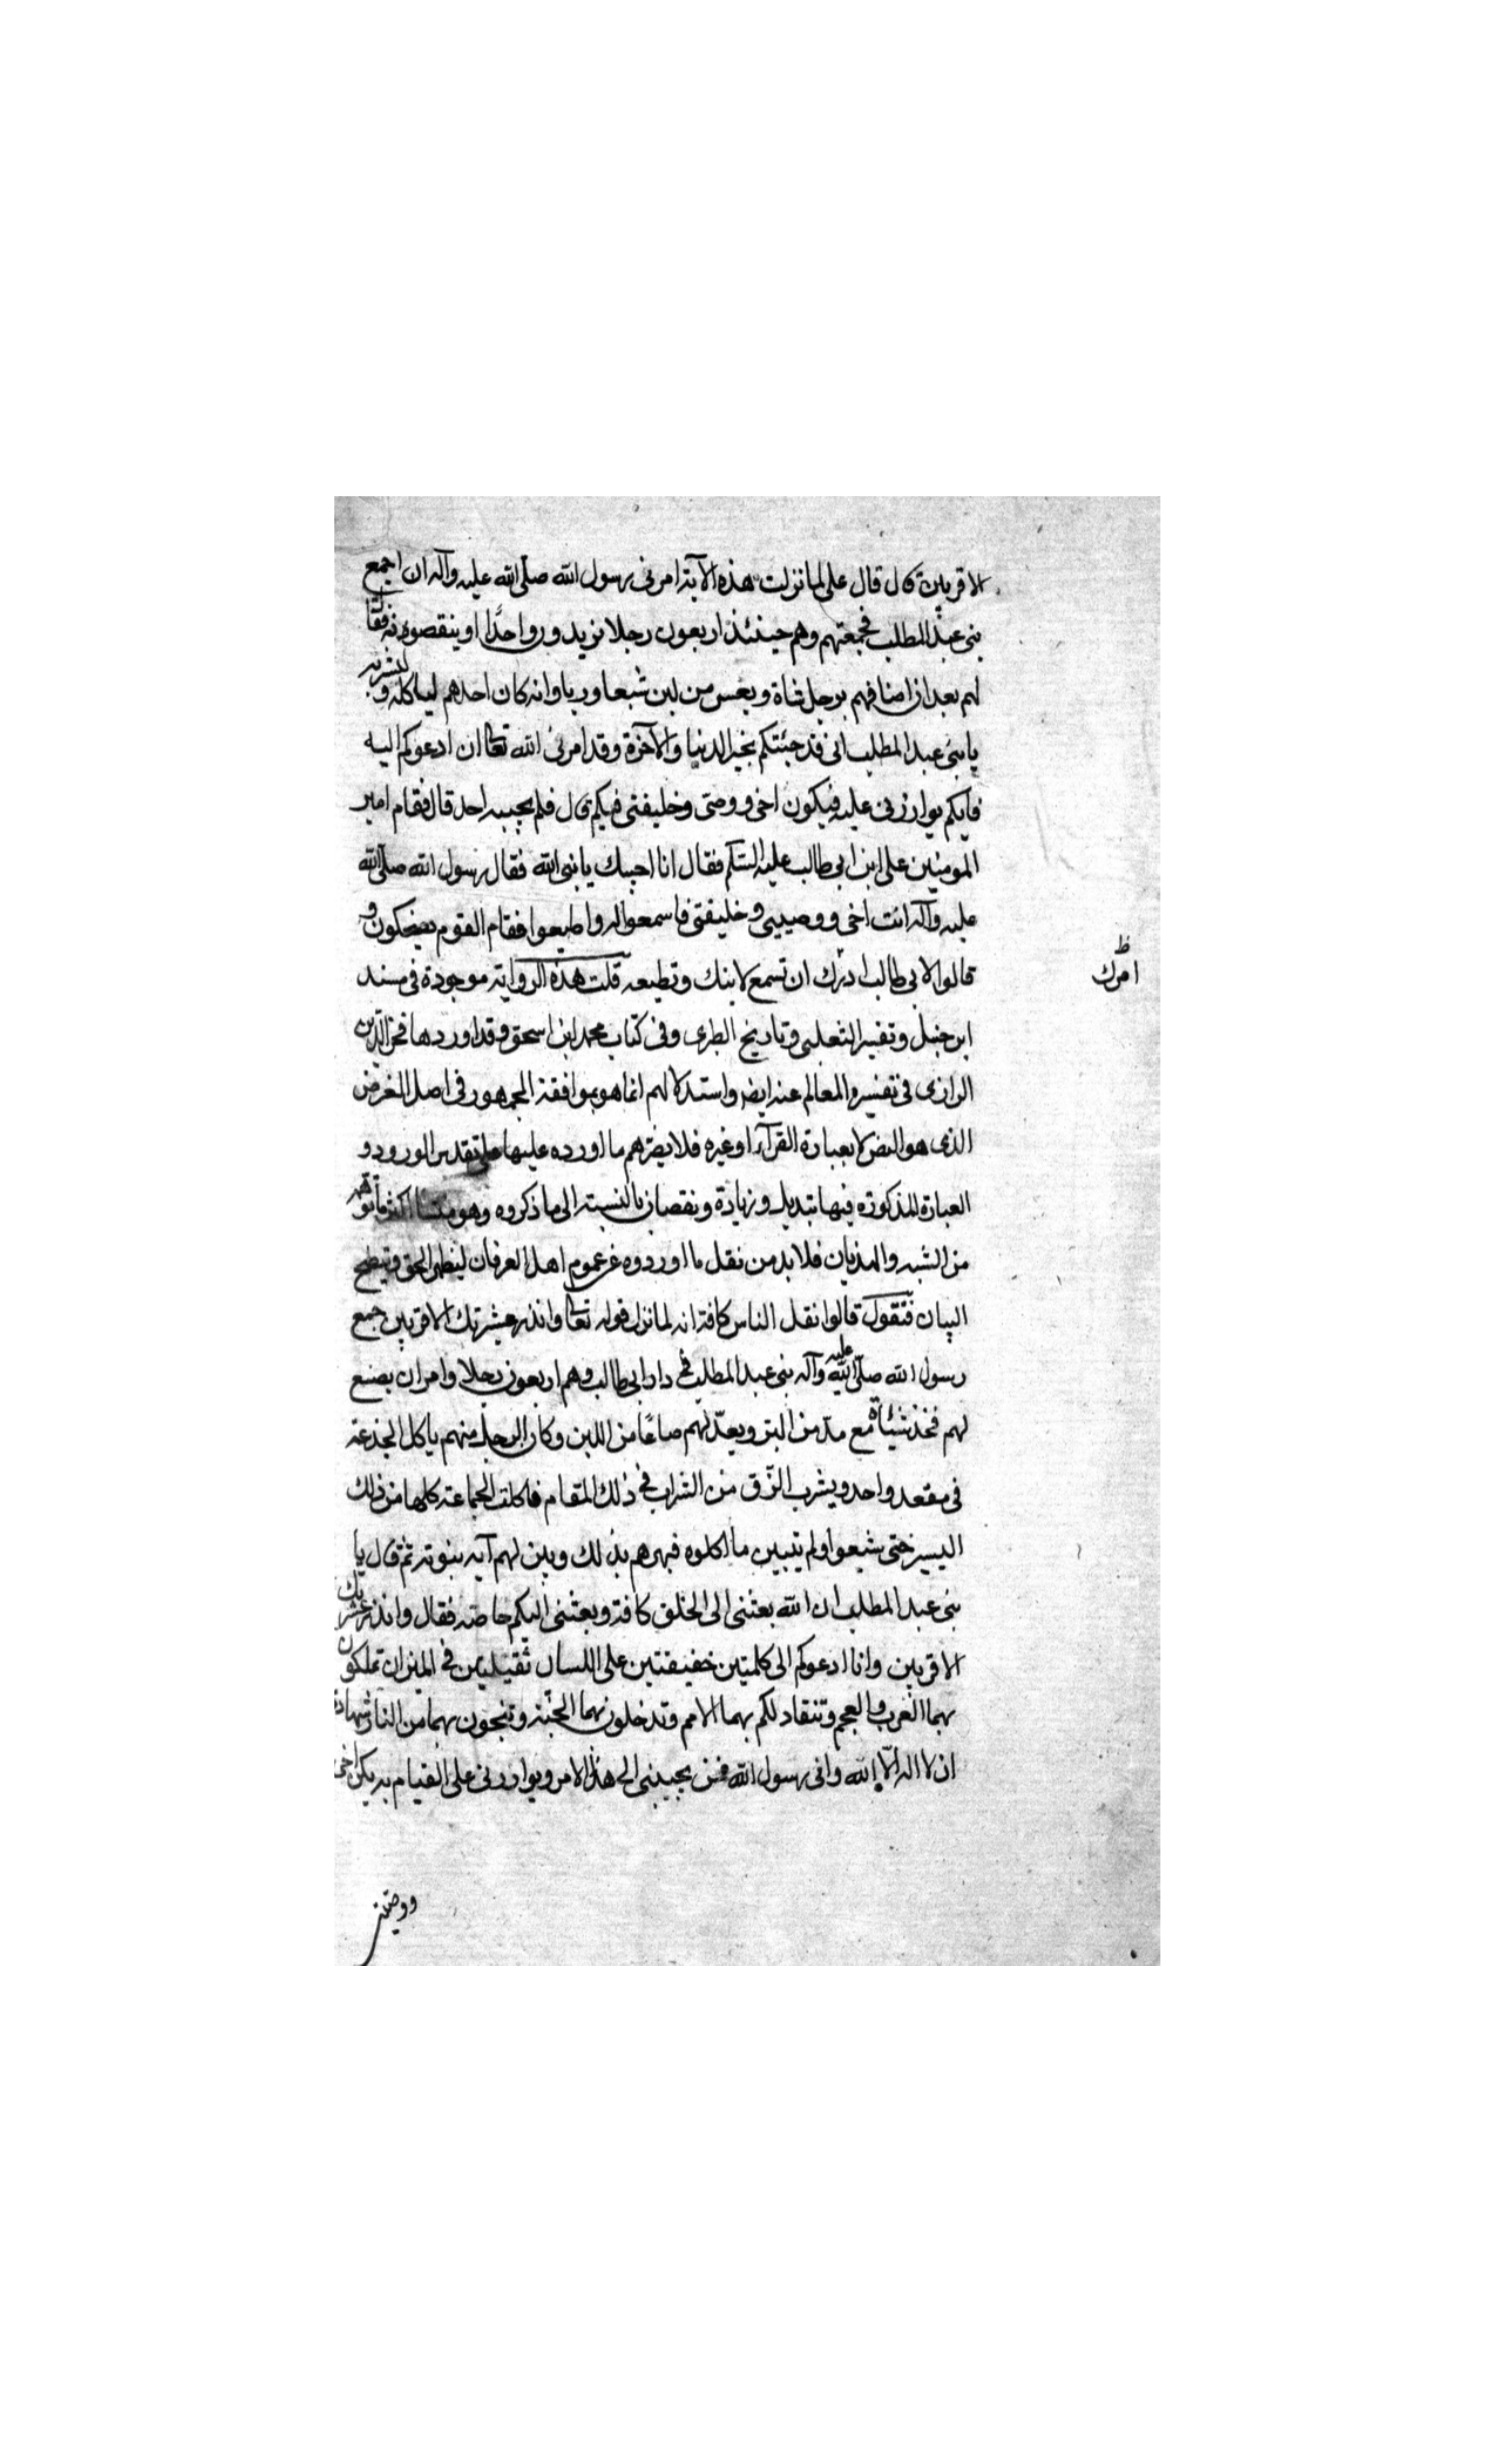 الاقربين قال قال على لما نزلت هذه الآية امرنى رسول الله صلى الله عليه وآله ان اجمع
بنى عبد المطلب فجمعتهم وهم حينئذ اربعون رجلا يزيدون واحدًا او ينقصونه فقال
لهم بعد ان اضافهم برجل شاة وبعس من لبن شبعا وريا وانه كان احدهم لياكله و يشربه
يا بنى عبد المطلب انى قد جئتكم بخير الدنيا والآخرة وقد امرنى الله تعالى ان ادعوكم اليه
فايكم يوازرنى عليه فيكون اخى ووصى وخليفتى فيكم قال فلم يجيبه احد قال فقام امير
المومنين على ابن ابى طالب عليه السلم فقال انا اجيبك يا نبى الله فقال رسول الله صلى الله
عليه وآله انت اخى ووصيى وخليفتى فاسمعوا له واطيعوا فقام القوم يضحكون و
قالوا لابى طالب ادرك ان تسمع لابنك وتطيعه قلت هذه الرواية موجودة فى مسند
ظ
امرك
ابن حنبل وتفسير الثعلبى وتاريخ الطبرى وفى كتاب محمد ابن اسحق وقد اوردها فخر الدين
الرازى فى تفسير والمعالم عنه ايض واستدلالهم انما هو بموافقة الجمهور فى اصل الغرض
الذى هو النص لا بعبارة القرآن او غيره فلا يضرهم ما اورده عليها على تقدير الورود و
العبارة المذكورة فيها بتبديل وزيادة ونقصان بالنسبة الى ما ذكروه وهو
من الشبه والهذيان فلا بد من نقل ما اوردوه عموم اهل العرفان ليظهر الحق ويتضح
البيان فنقول قالوا نقل الناس كافة انه لما نزل قوله تعالى وانذر عشيرتك الاقربين جمع
رسول الله صلى الله عليه وآله بنى عبد المطلب فى دار ابى طالب وهم اربعون رجلا وامر ان يصنع
لهم فخذ شاة مع مد من البر ويعد لهم صاعًا من اللبن وكان الرجل منهم ياكل الجذعة
فى مقعد واحد ويشرب الزق من الشراب فى ذلك المقام فاكلت الجماعة كلها من ذلك
اليسير حتى شبعوا ولم يتبين ما اكلوه فبهرهم بذلك وبين لهم آية نبوته ثم قال يا
بنى عبد المطلب ان الله بعثنى الى الخلق كافة وبعثنى اليكم خاصة فقال وانذر عشيرتك
الاقربين وانا ادعوكم الى كلمتين خفيفتين على اللسان ثقيلتين فى الميزان تملكون
بهما العرب والعجم وتنقاد لكم بهما الامم وتدخلون بهما الجنة وتنجون بهما من النار شهادة
ان لا اله الا الله وانى رسول الله فمن يجيبنى الى هذا الامر ويوازرنى على القيام به يكن اخى
ووصيتى